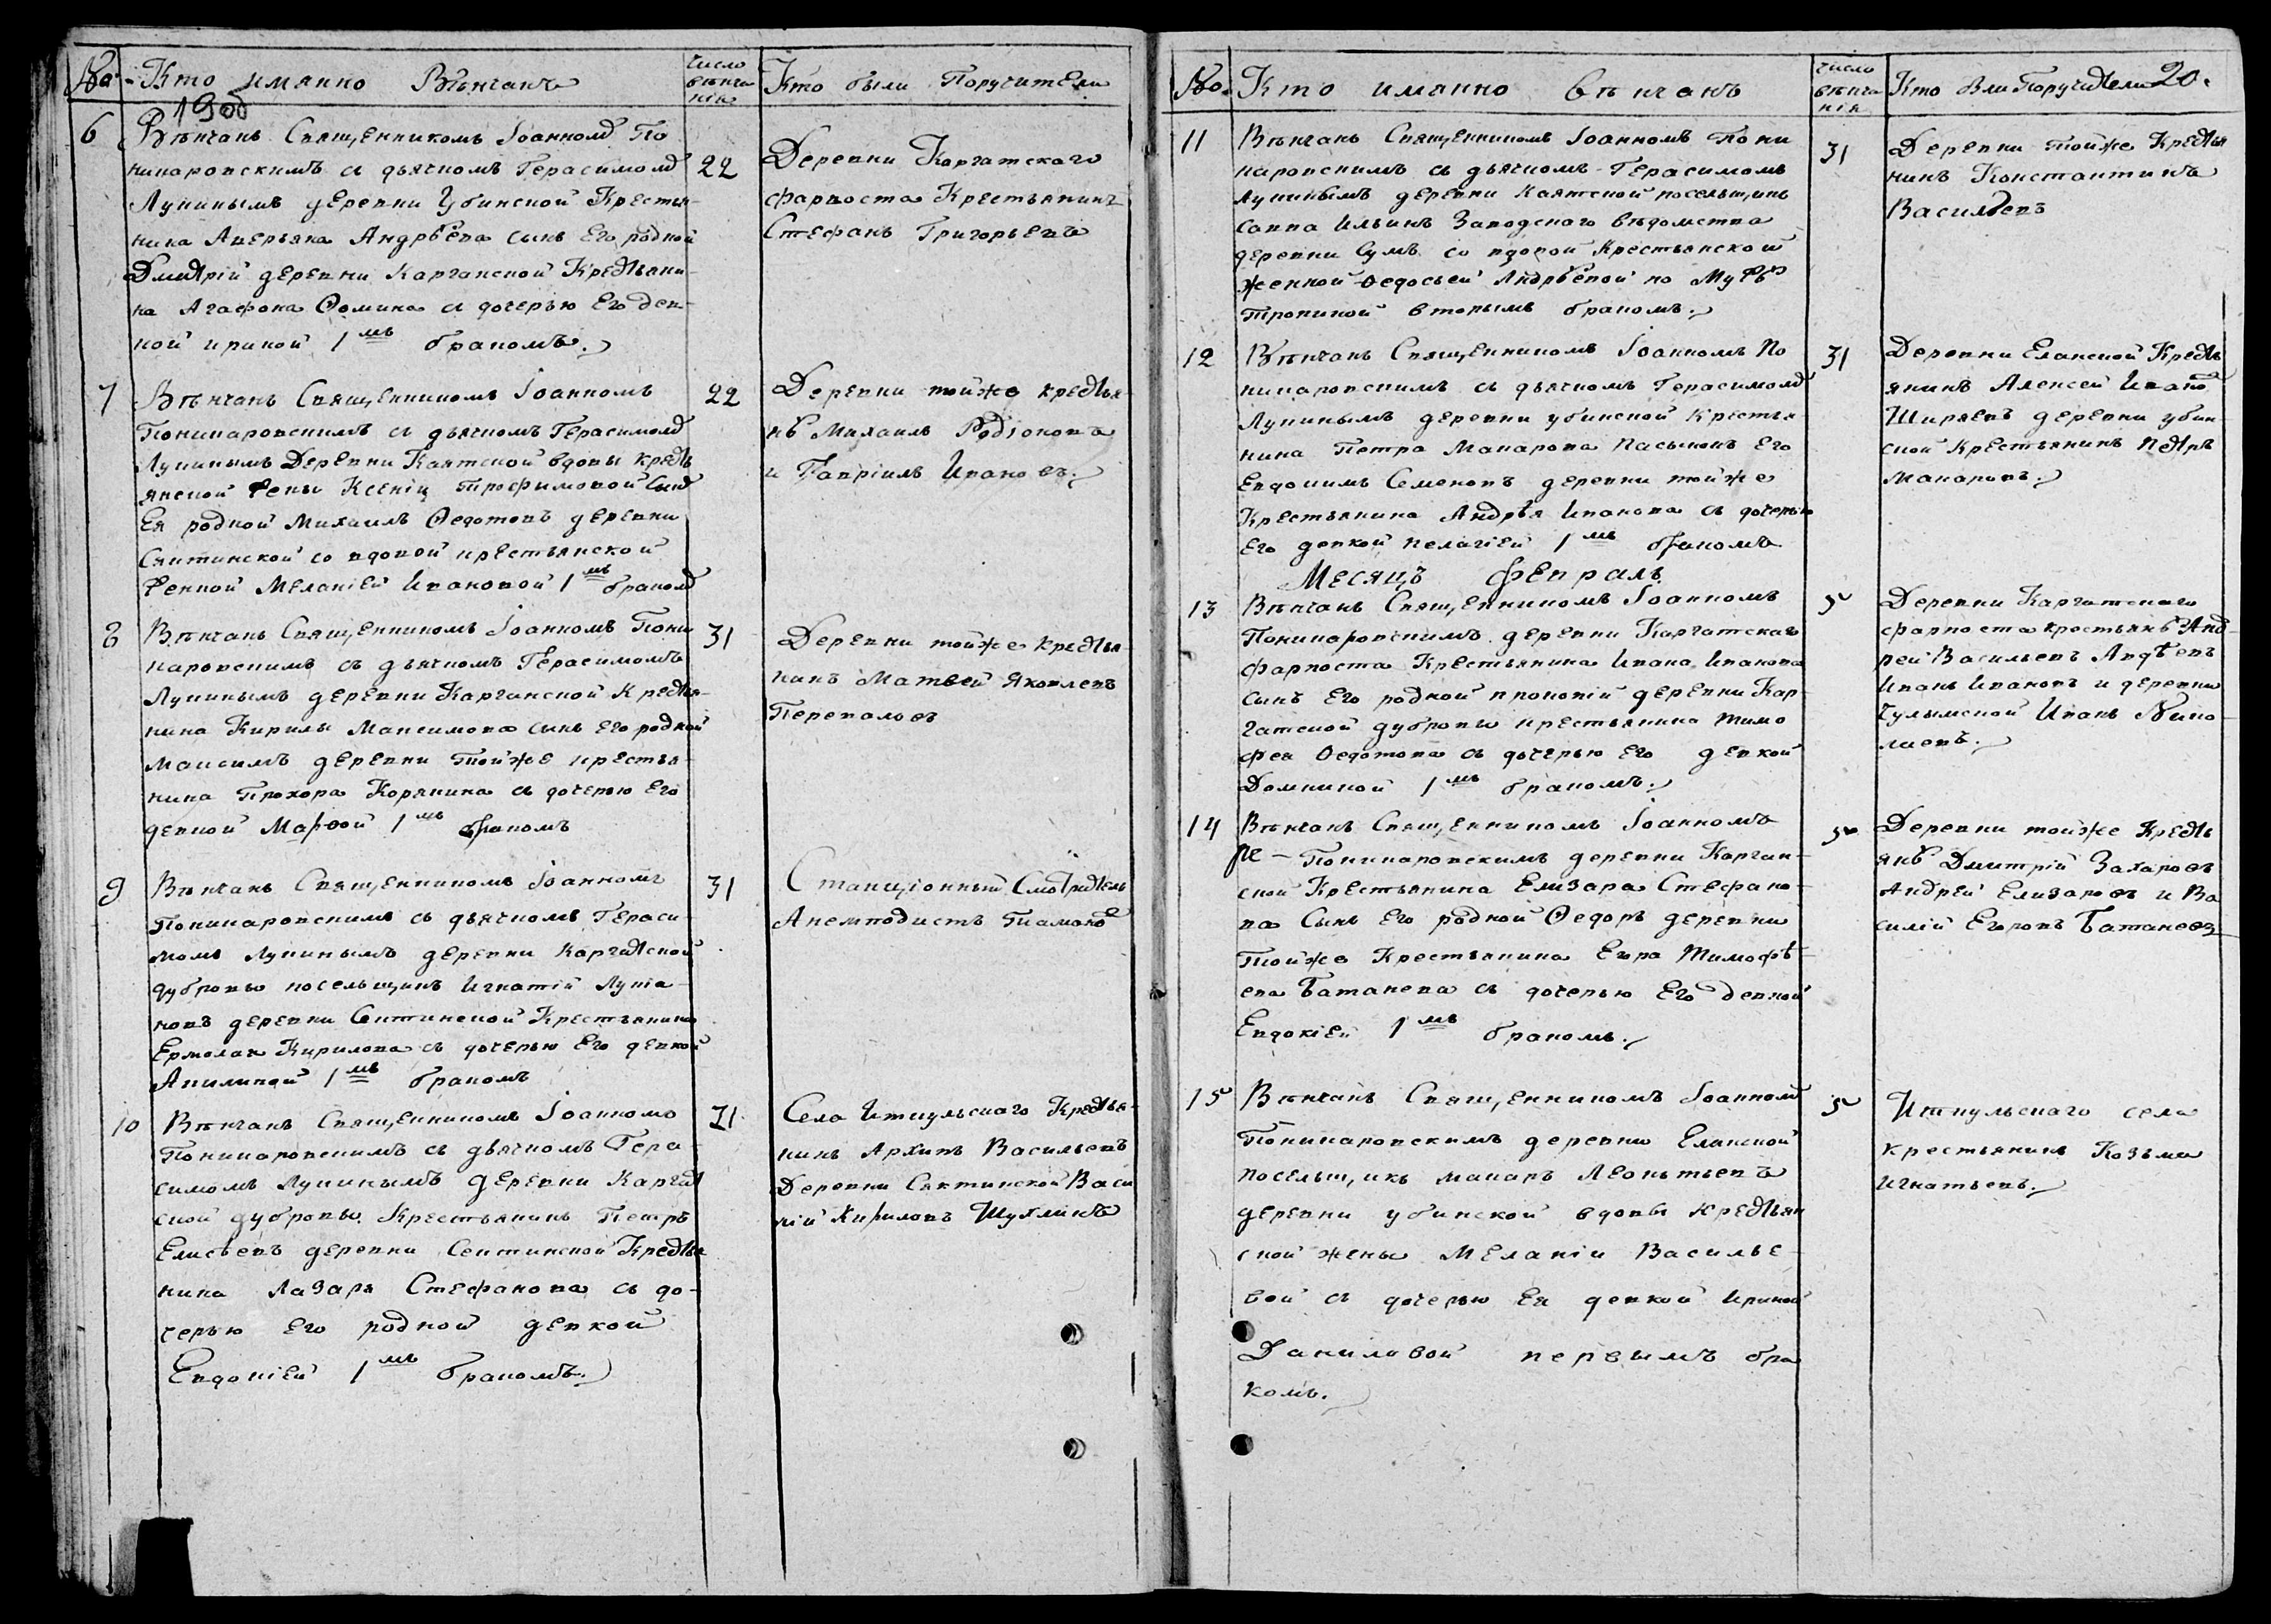 № Кто имянно Вѣнчанъ
число вѣнчанія
Кто были Поручители
19 об
6 Вѣнчанъ Священникомъ Iоанномъ По
никаровскимъ съ дьячкомъ Герасимомъ
Лукинымъ деревни Убинской Крестья-
нина Аверьяна Андрѣева сынъ Его родной
Дмитрій деревни Карганской Крестьяни-
на Агафона Ѳомина съ дочерью Его дев-
кой ириной 1мъ бракомъ.
22
Деревни Каргатскаго
фарпоста Крестьянинъ
Стефанъ Григорьевъ
7 Вѣнчанъ Священникомъ Iоанномъ
Поникаровскимъ съ дьячкомъ Герасимомъ
Лукинымъ Деревни Каятской вдовы кресть
янской жены Ксеніи Трофимовой Сынъ
Ея родной Михаилъ Ѳедотовъ деревни
Сектинской со вдовой крестьянской
женкой Меланіей Ивановой 1мъ бракомъ
22
Деревни тойже крестья-
нѣ Михаилъ Родіоновъ
и Гавріилъ Ивановъ.
8 Вѣнчанъ Священникомъ Iоанномъ Пони
каровскимъ съ дьячкомъ Герасимомъ
Лукинымъ деревни Карганской Крестья-
нина Кирилы Максимова сынъ Его родной
максимъ деревни Тойже крестья-
нина Прохора Корякина съ дочерью Его
девкой Марѳой 1мъ бракомъ
31
Деревни тойже крестья-
нинъ Матвей Яковлевъ
Переваловъ
9 Вѣнчанъ Священникомъ Iоанномъ
Поникаровскимъ съ дьячкомъ Гераси-
момъ Лукинымъ деревни Каргатской
дубровы посельщикъ Игнатій Лукія-
новъ деревни Сектинской Крестьянина
Ермолая Кирилова съ дочерью Его девкой
Акилиной 1мъ бракомъ
31
Станціонный Смотритель
Анемподистъ
10 Вѣнчанъ Священникомъ Iоанномъ
Поникаровскимъ съ дьячкомъ Гера-
симомъ Лукинымъ деревни Каргат
ской дубровы Крестьянинъ Петръ
Елисѣевъ деревни Сектинской Крестья
нина Лазаря Стефанова съ до-
черью Его родной девкой
Евдокіей 1мъ бракомъ.
31
Села Иткульскаго Крестья-
нинъ Архипъ Васильевъ
Деревни Сектинской Васи
лій Кириловъ Шухлинъ
№ Кто имянно вѣнчанъ
число вѣнчанія
Кто были Поручители 20.
11 Вѣнчанъ Священникомъ Iоанномъ Пони
каровскимъ съ дьячкомъ Герасимомъ
Лукинымъ деревни Каятской посельщикъ
Савва Ильинъ Заводскаго вѣдомства
деревни Сумъ со вдовой Крестьянской
женкой Ѳедосьей Андрѣевой по Мужѣ
Тропиной вторымъ бракомъ.
31
Деревни тойже Крестья
нинъ Константинъ
Васильевъ
12 Вѣнчанъ Священникомъ Iоанномъ По
никаровскимъ съ дьячкомъ Герасимомъ
Лукинымъ деревни убинской Крестья-
нина Петра Макарова Пасынокъ Его
Евдокимъ Семеновъ деревни тойже
Крестьянина Андрѣя Иванова съ дочерью
Его девкой пелагіей 1мъ бракомъ
31
Деревни Еланской Кресть
янинъ Алексей Иванов
Ширяевъ деревни убин
ской Крестьянинъ Петръ
Макаровъ.
Месяцъ февраль
13 Вѣнчанъ Священникомъ Iоанномъ
Поникаровскимъ деревни Каргатскаго
фарпоста Крестьянина Ивана Иванова
сынъ Его родной прокопій деревни Кар-
гатской дубровы крестьянина тимо
фея Ѳедотова съ дочерью Его девкой
Домникой 1мъ бракомъ.
5
Деревни Каргатскаго
фарпоста крестьянѣ Анд-
рей Васильевъ Авдѣевъ
Иванъ Ивановъ и деревни
Чулымской Иванъ Нико-
лаевъ.
14 Вѣнчанъ Священникомъ Iоанномъ
Поникаровскимъ деревни Карган-
ской Крестьянина Елизара Стефано-
ва Сынъ Его родной Ѳедоръ деревни
Тойже Крестьянина Егора Тимофѣ-
ева Батанева съ дочерью Его девкой
Евдокіей 1мъ бракомъ.
5
Деревни тойже Кресть
янѣ Дмитрій Захаровъ
Андрей Елизаровъ и Ва
силій Егоровъ Батаневъ
15 Вѣнчанъ Священникомъ Iоанномъ
Поникаровскимъ деревни Еланской
посельщикъ макаръ Леонтьевъ
деревни убинской вдовы крестьян
ской жены Меланіи Василье-
вой съ дочерью Ея девкой Ириной
Даниловой первымъ бра
комъ.
5
Иткульскаго села
крестьянинъ Козьма
Игнатьевъ.